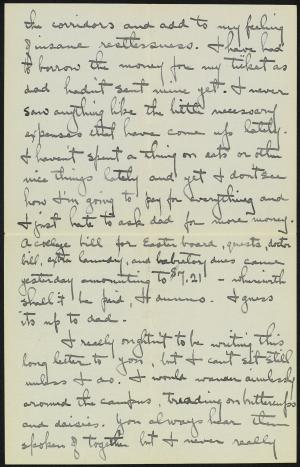 the corridors and add to my feeling
of insane restlessness. I have had
to borrow the money for my ticket as
dad hadn't sent mine yet. I never
saw anything like the little necessary
expenses that have come up lately.
I haven't spent a thing on eats or other
nice things lately and yet I don't see
how I'm going to pay for everything and
I just hate to ask dad for more money.
A college bill for Easter board, guests, doctor
bill, extra laundry, and laboratory dues came
yesterday amounting to $7.21 - wherewith
shall it be paid, I dunno. I guess
its up to dad.
I really oughtn't to be writing this
long letter to you, but I can't set still
unless I do. I would wander aimlessly
around the campus, treading on buttercups
and daisies. You always hear them
spoken of together but I never really